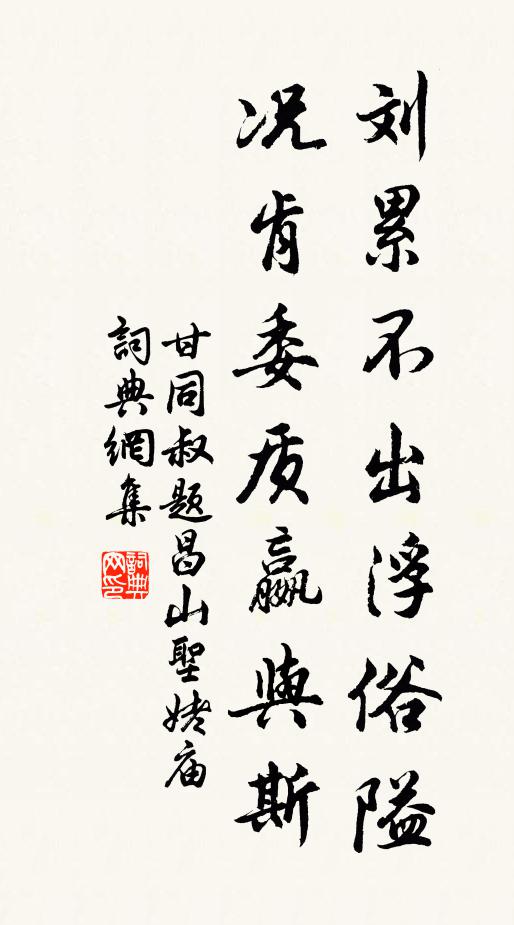 刘累不出浮俗隘
况肯委质嬴與斯
甘同叔题昌山聖姥庙
詞典網集
詞典网印